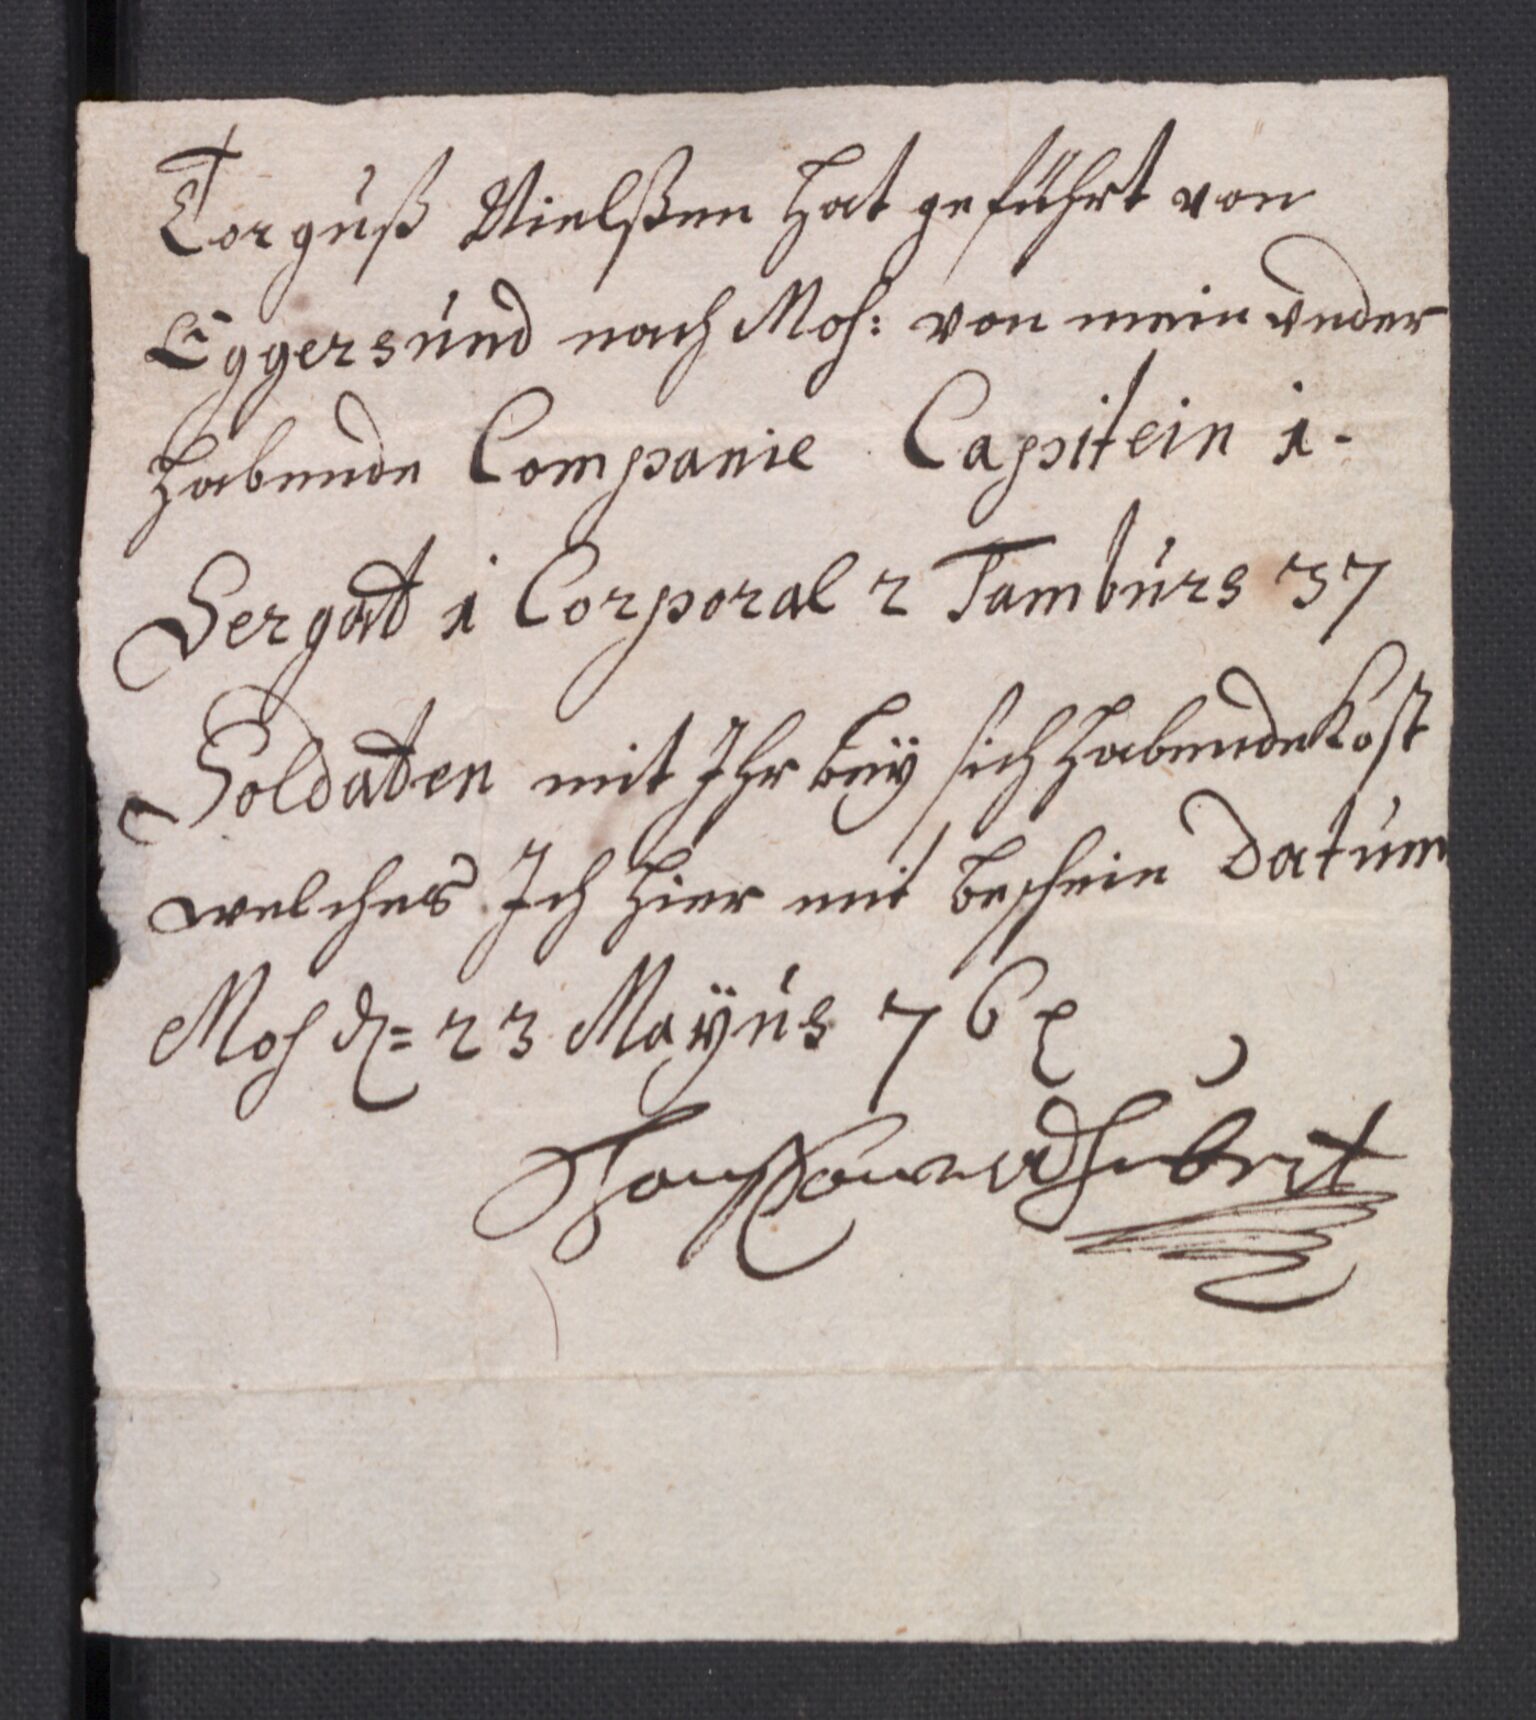 Torguß Nielßen hat geführt von
Eggersund nach Moß: von mein vnder
habende Companie Capitein 1 -
Sergat 1 Corporal 2 Tamburs 37
Soldaten mit Ihr beÿ sich habende Kost
welches Ich hier mit beschein Datum
Moß 23 Maÿus 76